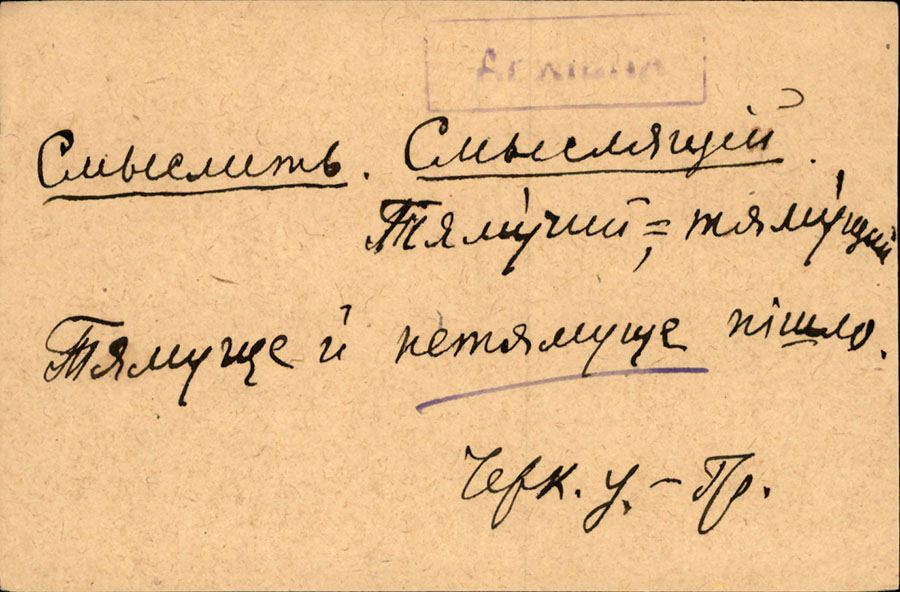 Смыслить. Смыслящий.
Тяму́чий =, тяму́щий
Тямуще й нетямуще пішло.
Черк. у. – Пр.